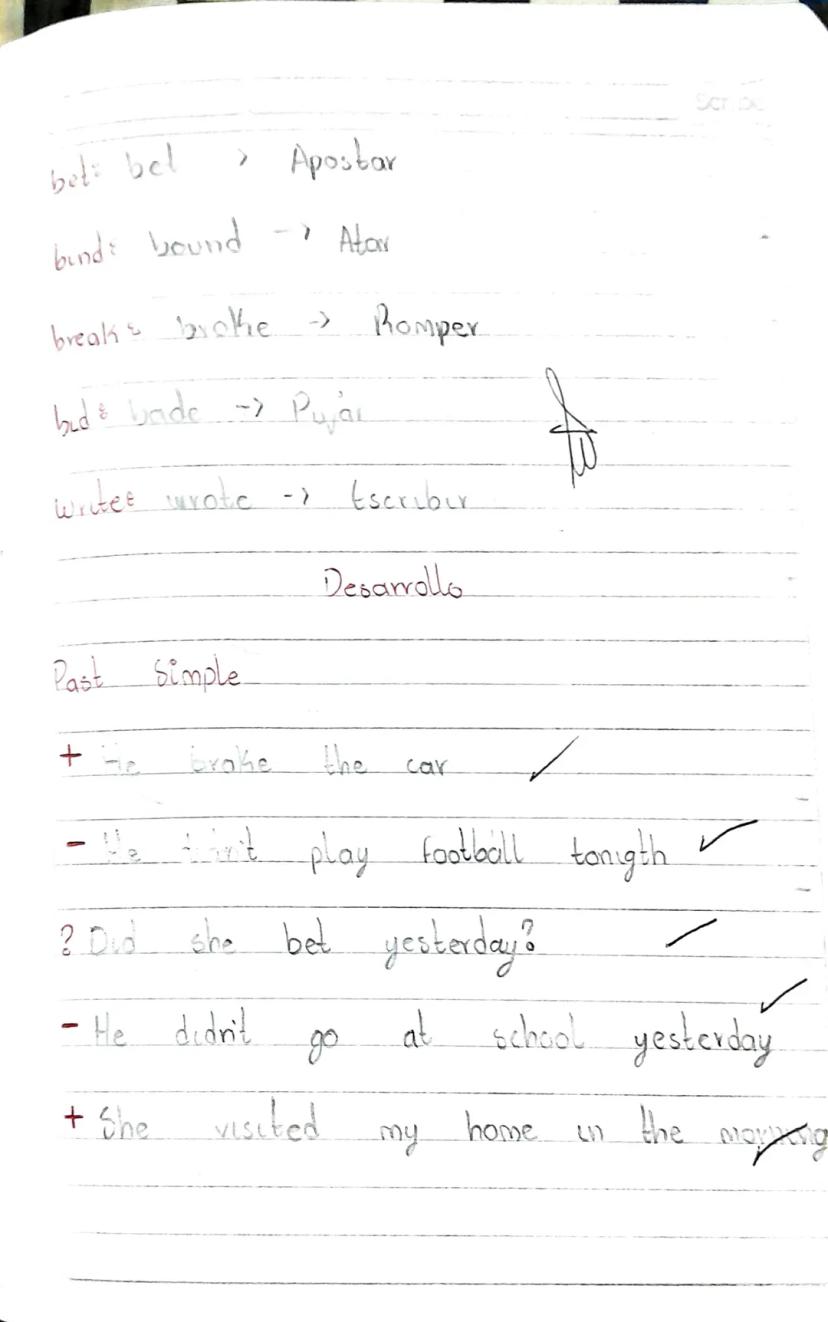 bet: bet > Apostar
bind: bound -> Atar
break: broke -> Romper
bid: bade -> Pujar
write: wrote -> Escribir
Desarrollo
Past Simple
+ He broke the car
- He didn't play football tonigth
? Did she bet yesterday?
- He didn't go at school yesterday
+ She visited my home in the morning